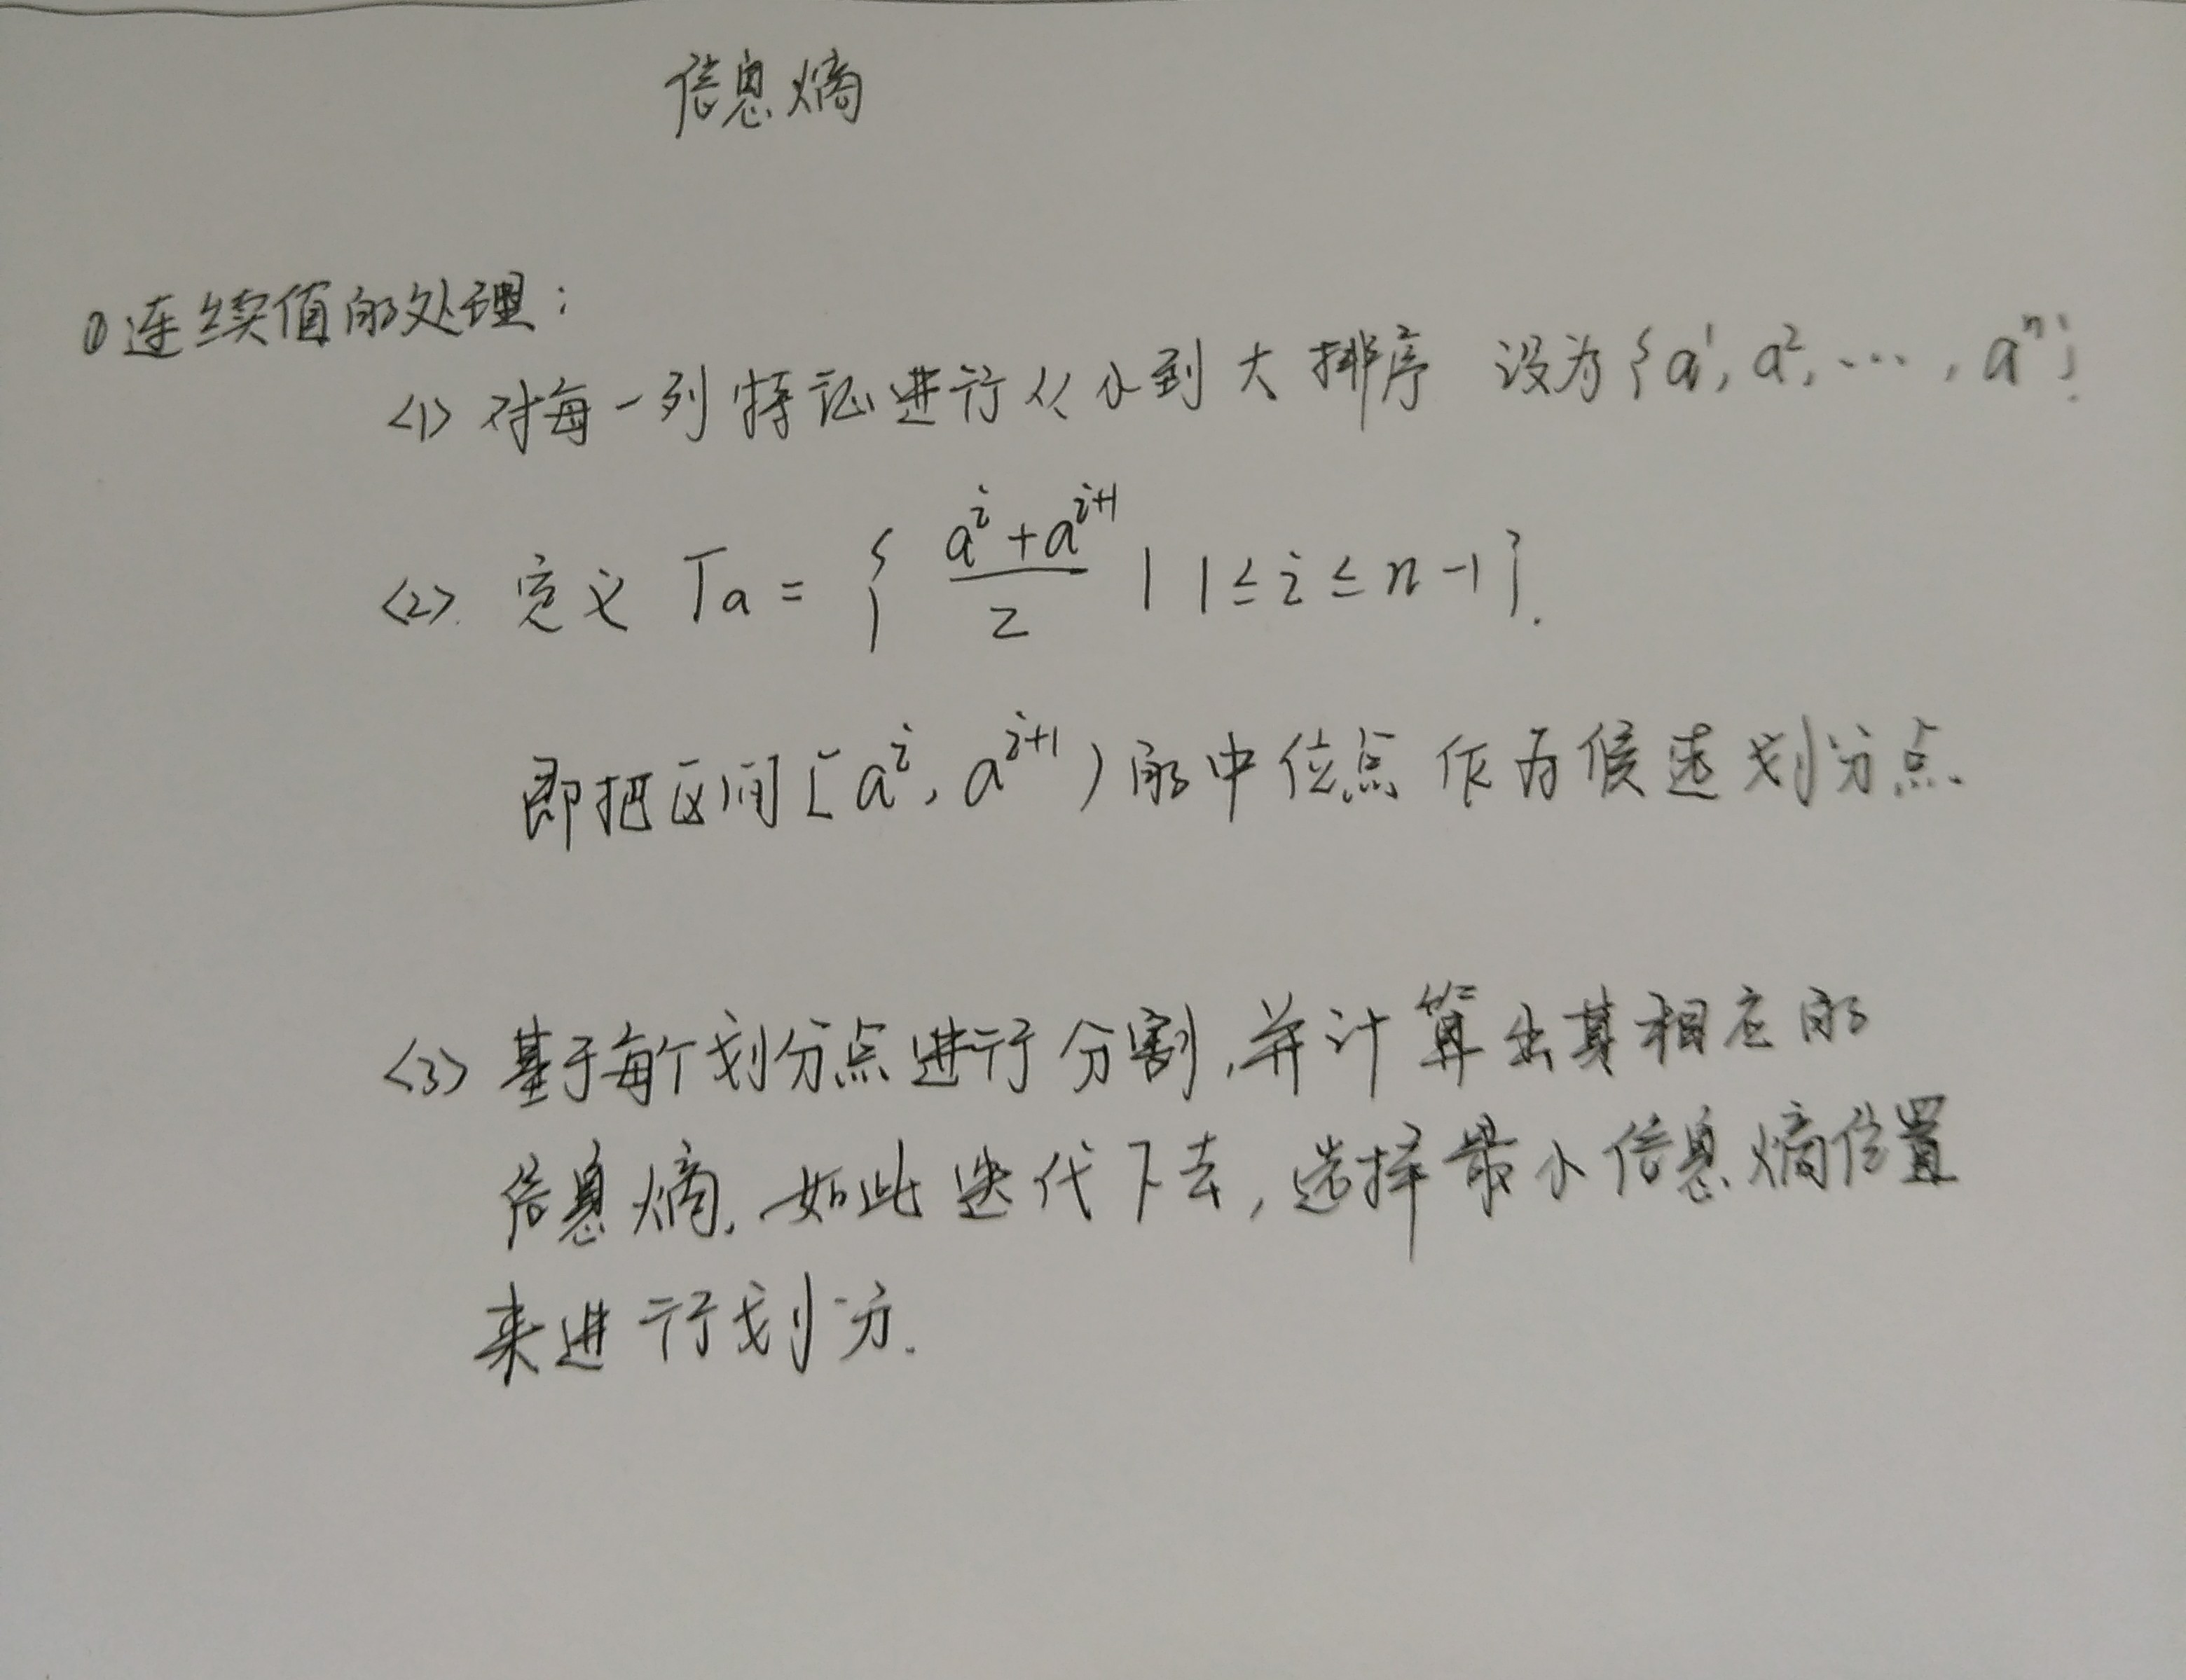 信息熵
①连续值的处理：
<1> 对每一列特征进行从小到大排序 设为{a¹, a², ⋯, aⁿ}.
<2>. 定义 Tₐ = { (aⁱ + aⁱ⁺¹)/2 | 1 ≤ i ≤ n-1}.
即把区间[aⁱ, aⁱ⁺¹)的中位点作为候选划分点.
<3> 基于每个划分点进行分割,并计算出其相应的
信息熵.如此迭代下去,选择最小信息熵位置
来进行划分.